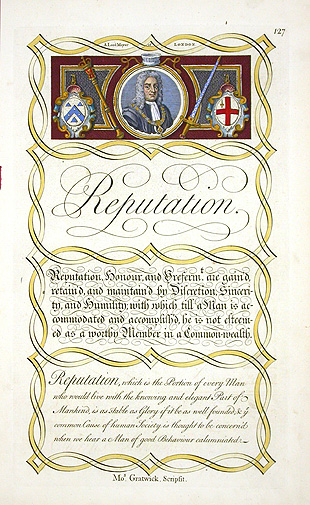 127
A Lord Mayor of LONDON.
Reputation.
Reputation, Honour, and Preferm.t are gain'd,
retain'd, and maintain'd by Discretion, Sinceri-
ty, and Humility, with which till a Man is ac-
commodated and accomplish'd, he is not esteem-
ed as a worthy Member in a Common-wealth.
Reputation, which is the Portion of every Man
who would live with the knowing and elegant Part of
Mankind, is as stable as Glory if it be as well founded, & ye
common Cause of human Society is thought to be concern'd
when we hear a Man of good Behaviour calumniated:
Mos. Gratwick, Scripsit.